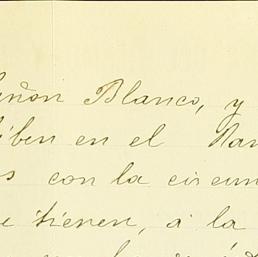 eñon Blanco, y
iben en el Ran
os con la circun
e tienen, á la